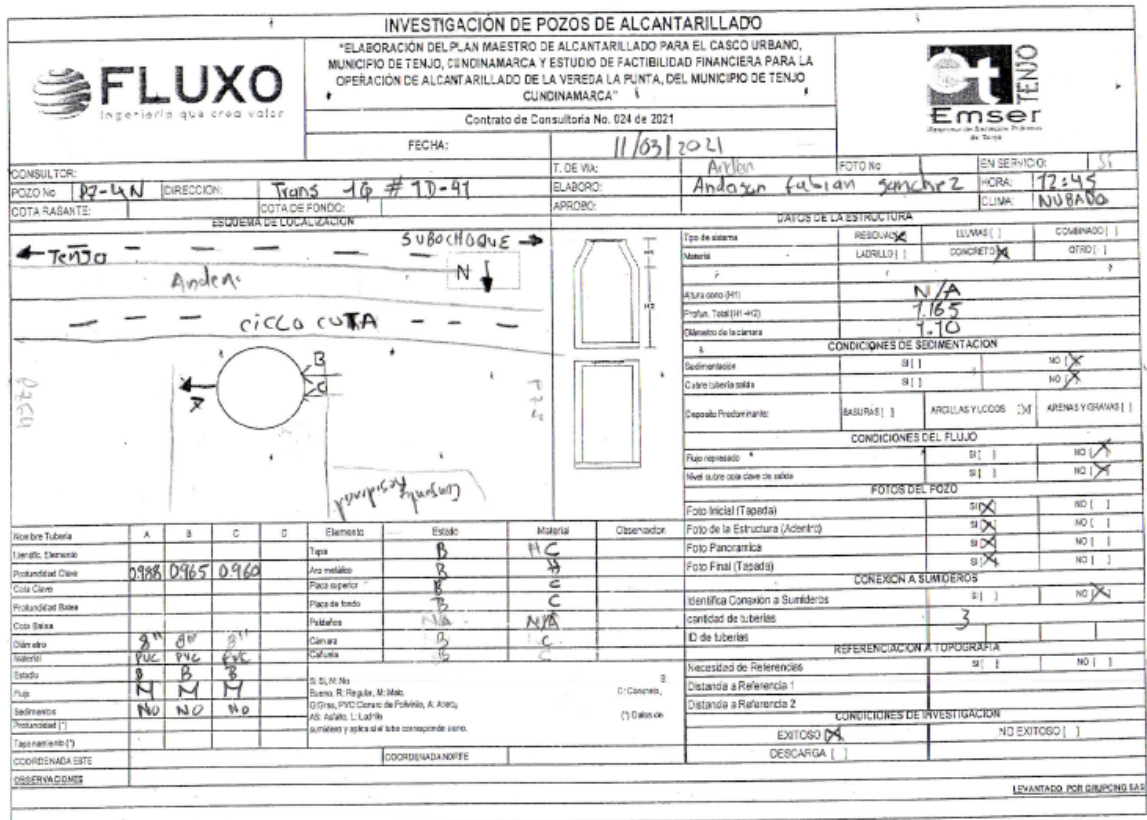 INVESTIGACIÓN DE POZOS DE ALCANTARILLADO
FLUXO
Ingeniería que crea valor
"ELABORACIÓN DEL PLAN MAESTRO DE ALCANTARILLADO PARA EL CASCO URBANO,
MUNICIPIO DE TENJO, CUNDINAMARCA Y ESTUDIO DE FACTIBILIDAD FINANCIERA PARA LA
OPERACIÓN DE ALCANTARILLADO DE LA VEREDA LA PUNTA, DEL MUNICIPIO DE TENJO
CUNDINAMARCA"
Contrato de Consultoria No. 024 de 2021
FECHA: 11/03/2021
et TENJO
Emser
de Tenjo
CONSULTOR: T. DE VIA: Anden FOTO No EN SERVICIO: Si
POZO No PZ-4N DIRECCION: Trans #1D-41 ELABORO: Andason fabian sanchez HORA: 12:45
COTA RASANTE: COTA DE FONDO: APROBO: CLIMA: NUBADO
ESQUEMA DE LOCALIZACION
Tenjo
SUBOCHOQUE
Anden
N
ciclo CUTA
B
C
A
Conjunto
Residencial
H1
H2
DATOS DE LA ESTRUCTURA
Tipo de sistema RESIDUAL [X] LLUVIAS [ ] COMBINADO [ ]
Material LADRILLO [ ] CONCRETO [X] OTRO [ ]
Altura cono (H1) N/A
Profun. Total (H1+H2) 1.165
Diámetro de la cámara 1.10
CONDICIONES DE SEDIMENTACION
Sedimentación SI [ ] NO [X]
Cubre tubería salida SI [ ] NO [X]
Deposito Predominante: BASURAS [ ] ARCILLAS Y LODOS [X] ARENAS Y GRAVAS [ ]
CONDICIONES DEL FLUJO
Flujo represado SI [ ] NO [X]
Nivel sobre cota clave de salida SI [ ] NO [X]
FOTOS DEL POZO
Foto Inicial (Tapada) SI [X] NO [ ]
Foto de la Estructura (Adentro) SI [X] NO [ ]
Foto Panoramica SI [X] NO [ ]
Foto Final (Tapada) SI [X] NO [ ]
CONEXIÓN A SUMIDEROS
Identifica Conexion a Sumideros SI [ ] NO [X]
cantidad de tuberias 3
ID de tuberias
REFERENCIACION A TOPOGRAFIA
Necesidad de Referencias SI [ ] NO [ ]
Distancia a Referencia 1
Distancia a Referencia 2
CONDICIONES DE INVESTIGACION
EXITOSO [X] NO EXITOSO [ ]
DESCARGA [ ]
Nombre Tubería A B C D
Identific. Elemento
Profundidad Clave 0.988 0.965 0.960
Cota Clave
Profundidad Batea
Cota Batea
Diámetro 8" 8" 8"
Material PVC PVC PVC
Estado B B B
Flujo M M M
Sedimentos NO NO NO
Profundidad (*)
Taponamiento (*)
Elemento Estado Material Observacion
Tapa B HC
Aro metálico B H
Placa superior B C
Placa de fondo B C
Peldaños N/A N/A
Cámara B C
Cañuela B C
S: Si, N: No B:
Bueno, R: Regular, M: Malo, C: Concreto,
G:Gres, PVC:Cloruro de Polivinilo, A: Acero,
AS: Asfalto, L: Ladrillo (*) Datos de
sumidero y aplica si el tubo corresponde a uno.
COORDENADA ESTE COORDENADA NORTE
OBSERVACIONES
LEVANTADO POR GRUPCING SAS